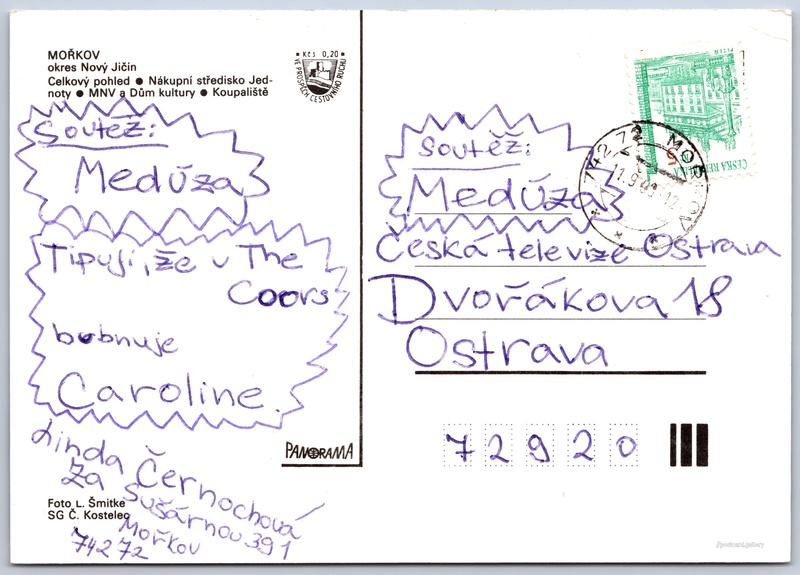 MOŘKOV
okres Nový Jičín
Celkový pohled ● Nákupní středisko Jed-
noty ● MNV a Dům kultury ● Koupaliště
• Kčs 0,20 •
VE PROSPĚCH CESTOVNÍHO RUCHU
Soutěž:
Medúza
Tipuji, že v The
Coors
bubnuje
Caroline.
Linda Černochová
Za Sušárnou 391
Mořkov
742 72
PANORAMA
Foto L. Šmitke
SG Č. Kostelec
PLZEŇ
5
ČESKÁ REPUBLIKA
742 72 MOŘKOV
Soutěž:
Medúza
Česká televize Ostrava
Dvořákova 18
Ostrava
72920
postcard.gallery